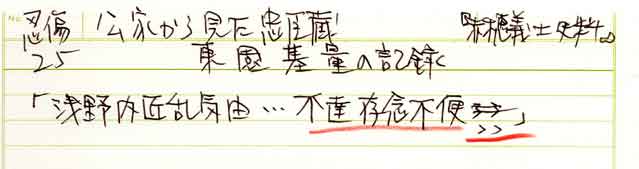 忍傷 公家から見た忠臣蔵 赤穂義士史料。
25 東園基量の記録
「浅野内匠乱気由…不達存念不便〻〻」